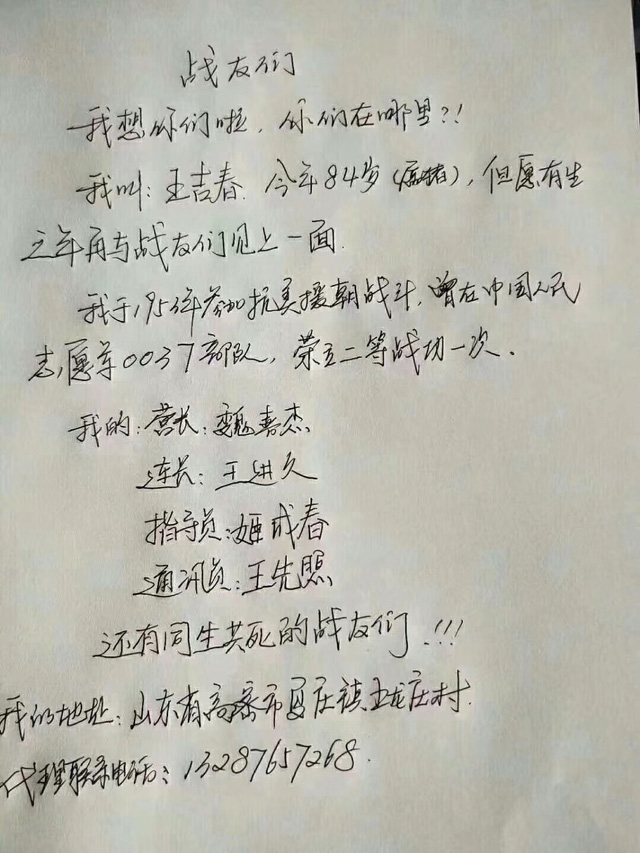 战友们
我想你们啦，你们在哪里?!
我叫:王吉春.今年84岁(属猪)，但愿有生
之年再与战友们见上一面.
我于1953年参加抗美援朝战斗，曾在中国人民
志愿军0037部队，荣立二等战功一次.
我的:营长:魏春杰
连长:王进久
指导员:姬成春
通讯员:王先照
还有同生共死的战友们!!!
我的地址:山东省高密市夏庄镇龙庄村.
代理联系电话:13287657268.